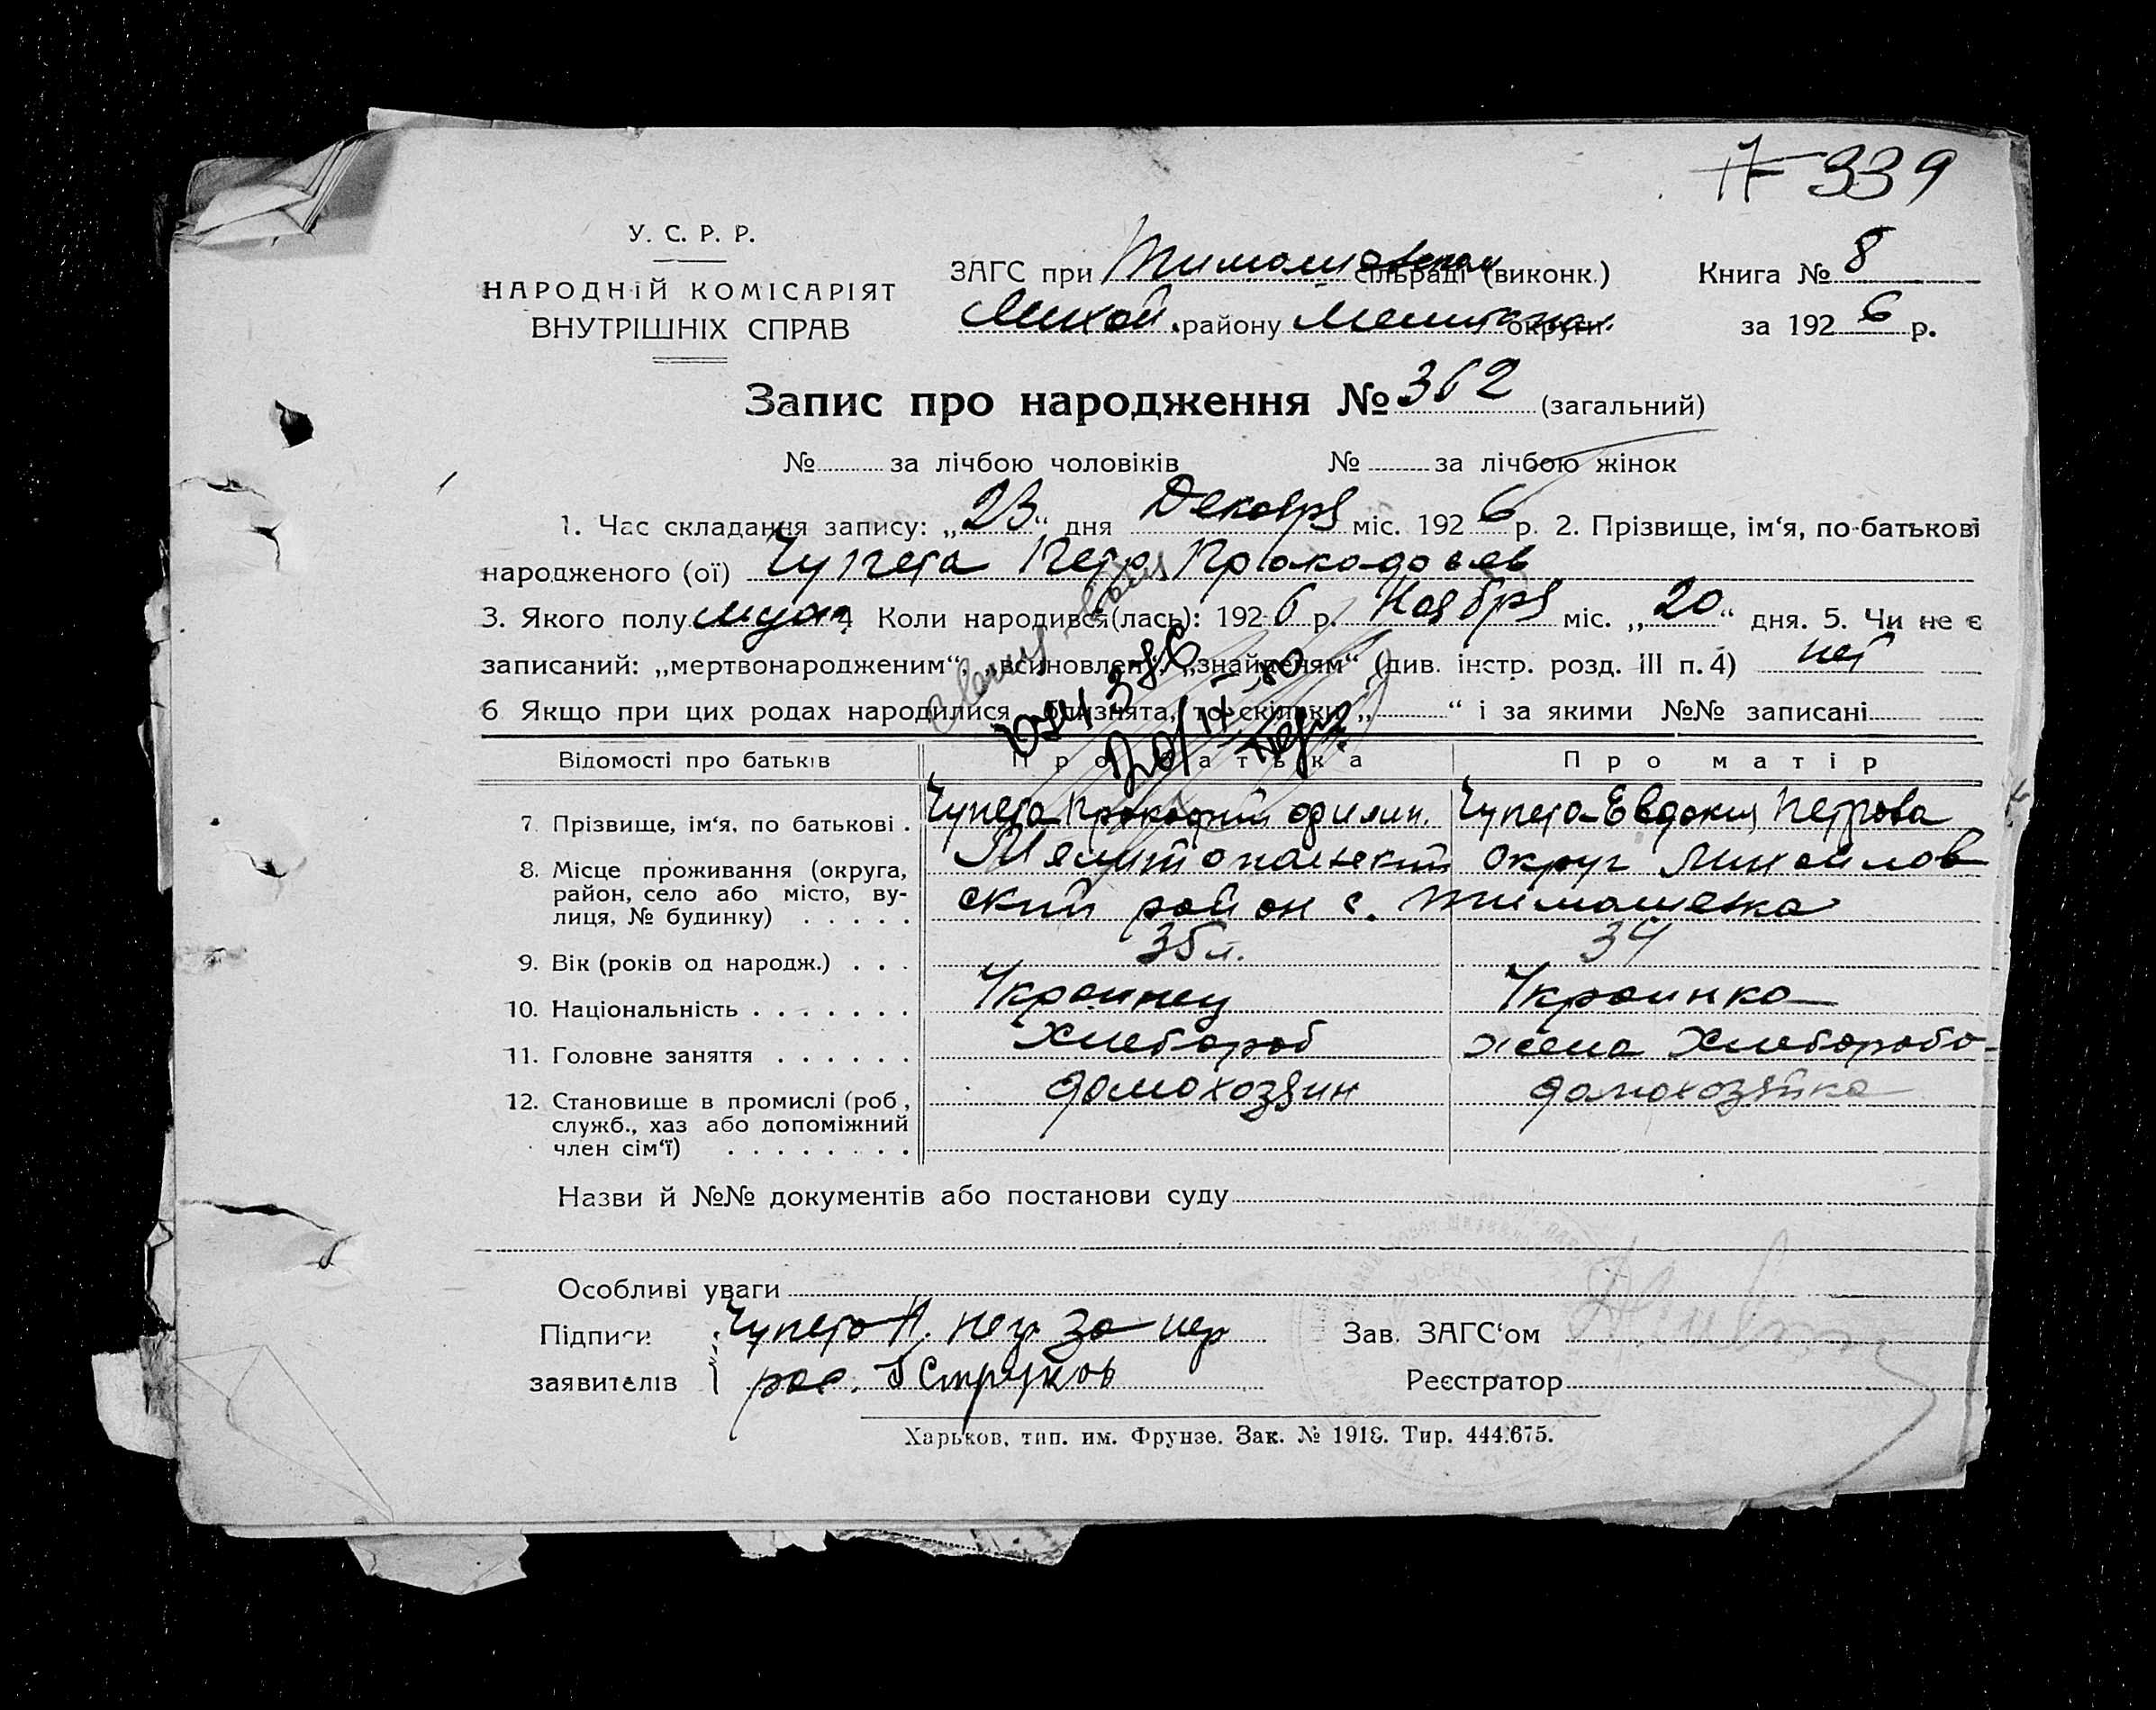 339
У. С. Р. Р.
НАРОДНІЙ КОМІСАРІЯТ
ВНУТРІШНІХ СПРАВ
ЗАГС при Тимошовском сільраді (виконк.)
Михай. району Мелитопол. округи
Книга № 8
за 1926 р.
Запис про народження № 362 (загальний)
№ за лічбою чоловіків № за лічбою жінок
1. Час складання запису: „23“ дня Декабря міс. 1926 р. 2. Прізвище, ім‘я, по-батькові
народженого (ої) Чупета Петр Прокофьев
3. Якого полу муж. 4 Коли народився(лась): 1926 р. Ноября міс. „20“ дня. 5. Чи не є
записаний: „мертвонародженим“, „всиновлен“, „знайденям“ (див. інстр. розд. III п. 4) нет
6 Якщо при цих родах народилися близнята, то скільки „ “ і за якими №№ записані
Відомості про батьків Про батька Про матір
7. Прізвище, ім‘я, по батькові . Чупета Прокофий Чупета Евдокия Петрова
8. Місце проживання (округа, Мелитопольский округ Михайлов
район, село або місто, ву- ский район с. Тимашевка
лиця, № будинку) . . . . .
9. Вік (років од народж.) . . . 35 л. 34
10. Національність . . . . . . . Украинец Украинка
11. Головне заняття . . . . . . Хлебороб жена Хлебороба
12. Становище в промислі (роб, домохозяин домохозяйка
служб., хаз або допоміжний
член сім‘ї) . . . . . . . .
Назви й №№ документів або постанови суду
Особливі уваги
Підписи Чупета П. неуг за нер
заявителів рос. Струков
Зав. ЗАГС‘ом
Реєстратор
Харьков, тип. им. Фрунзе. Зак. № 1918. Тир. 444.675.